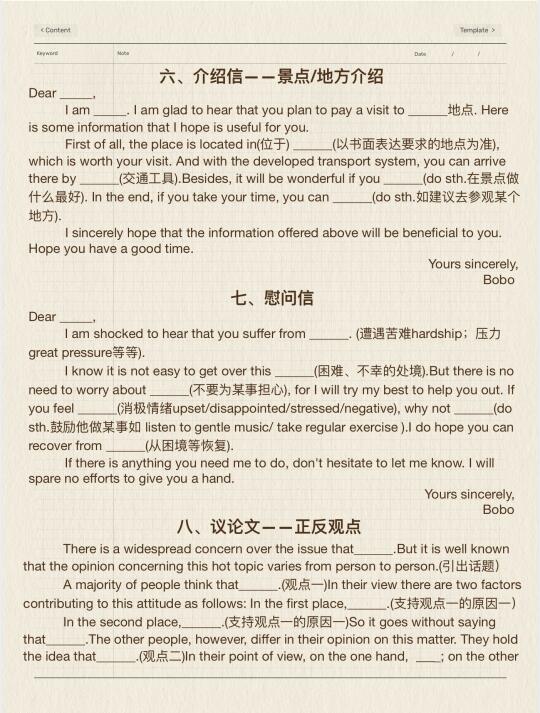 < Content
Template >
Keyword
Note
Date / /
六、介绍信——景点/地方介绍
Dear _____,
I am _____. I am glad to hear that you plan to pay a visit to ______地点. Here
is some information that I hope is useful for you.
First of all, the place is located in(位于) ______(以书面表达要求的地点为准),
which is worth your visit. And with the developed transport system, you can arrive
there by ______(交通工具).Besides, it will be wonderful if you ______(do sth.在景点做
什么最好). In the end, if you take your time, you can ______(do sth.如建议去参观某个
地方).
I sincerely hope that the information offered above will be beneficial to you.
Hope you have a good time.
Yours sincerely,
Bobo
七、慰问信
Dear _____,
I am shocked to hear that you suffer from ______. (遭遇苦难hardship；压力
great pressure等等).
I know it is not easy to get over this ______(困难、不幸的处境).But there is no
need to worry about ______(不要为某事担心), for I will try my best to help you out. If
you feel ______(消极情绪upset/disappointed/stressed/negative), why not ______(do
sth.鼓励他做某事如 listen to gentle music/ take regular exercise ).I do hope you can
recover from ______(从困境等恢复).
If there is anything you need me to do, don't hesitate to let me know. I will
spare no efforts to give you a hand.
Yours sincerely,
Bobo
八、议论文——正反观点
There is a widespread concern over the issue that______.But it is well known
that the opinion concerning this hot topic varies from person to person.(引出话题）
A majority of people think that______.(观点一)In their view there are two factors
contributing to this attitude as follows: In the first place,______.(支持观点一的原因一）
In the second place,______.(支持观点一的原因一)So it goes without saying
that______.The other people, however, differ in their opinion on this matter. They hold
the idea that______.(观点二)In their point of view, on the one hand, ____; on the other